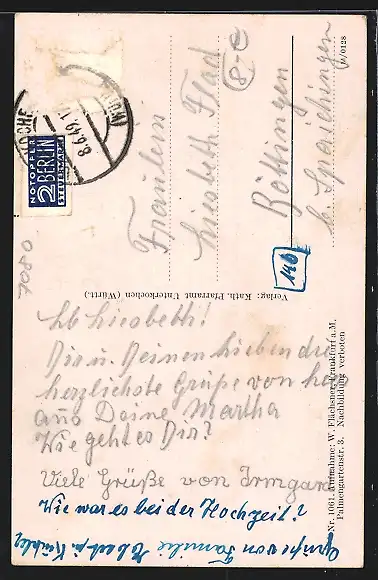 Lb Liesbeth!
Dir u. Deinen Lieben die
herzlichste Grüße von hier
aus Deine Martha
Wie geht es Dir?
Viele Grüße von Irmgard
Wie war es bei der Hochzeit?
Grüße von Familie
Fräulein
Liesbeth Flad
Böttingen
b. Spaichingen
(8-e
14b
7080
8.6.49.
NOTOPFER
2 BERLIN
STEUERMARKE
M/0128
Verlag: Kath. Pfarramt Unterkochen (Württ.)
Nr. 1061. Aufnahme: W. Flächsner, Frankfurt a.M.
Palmengartenstr. 3. Nachbildung verboten